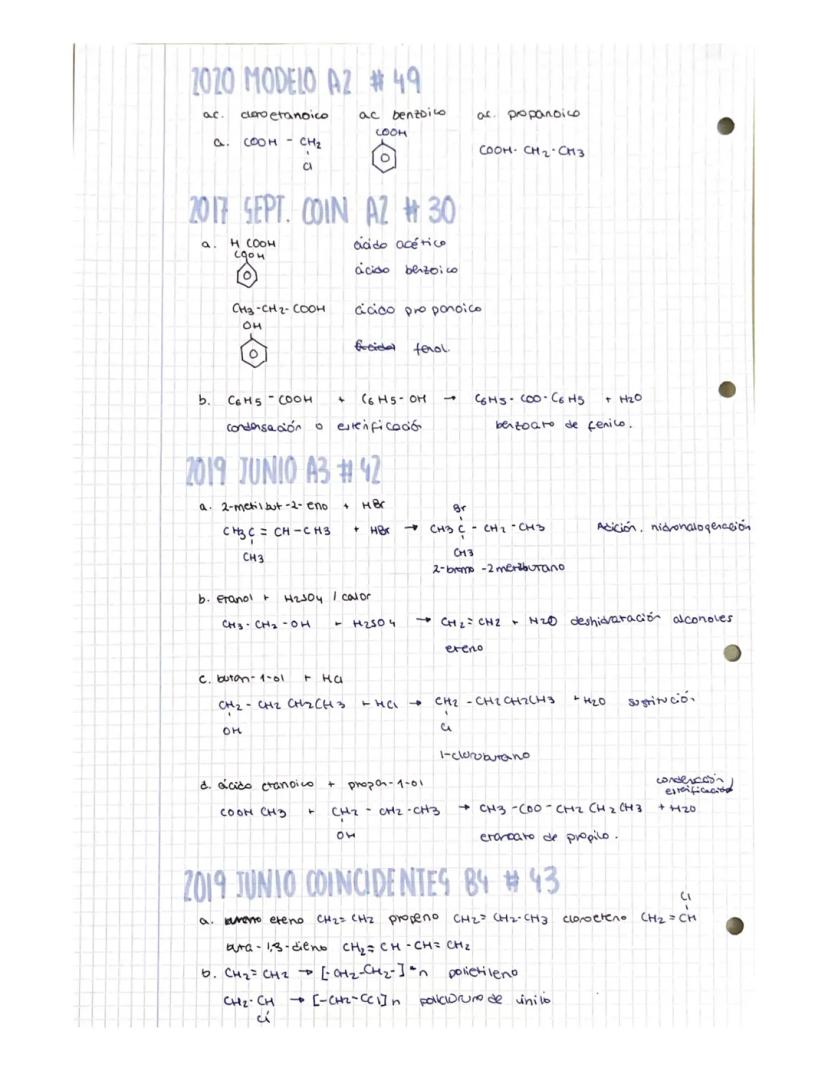 2020 MODELO A2 #49
ac. cloroetanoico ac benzoico ac. propanoico
COOH
a. COOH - CH2
COOH-CH2-CH3
Cl
2017 SEPT. COIN A2 #30
a. H COOH ácido acético
COOH
ácido benzoico
CH3-CH2-COOH ácido propanoico
OH
fenol.
b. C6H5-COOH + C6H5-OH → C6H5-COO-C6H5 + H2O
condensación o esterificación benzoato de fenilo.
2019 JUNIO A3 #42
a. 2-metilbut-2-eno + HBr Br
CH3C = CH-CH3 + HBr → CH3 C - CH2-CH3 Adición, hidrohalogenación
CH3 CH3
2-bromo-2metilbutano
b. etanol + H2SO4 / calor
CH3-CH2-OH + H2SO4 → CH2=CH2 + H2O deshidratación alcoholes
eteno
c. butan-1-ol + HCl
CH2 - CH2 CH2CH3 + HCl → CH2 - CH2CH2CH3 + H2O sustitución
OH Cl
1-clorobutano
d. ácido etanoico + propan-1-ol condensación/
esterificación
COOH CH3 + CH2 - CH2-CH3 → CH3-COO-CH2 CH2CH3 + H2O
OH etanoato de propilo.
2019 JUNIO COINCIDENTES B4 #43
Cl
a. eteno CH2=CH2 propeno CH2=CH2-CH3 cloroeteno CH2=CH
buta-1,3-dieno CH2=CH-CH=CH2
b. CH2=CH2 → [-CH2-CH2-]*n polietileno
CH2-CH → [-CH2-CCl]n policloruro de vinilo
Cl